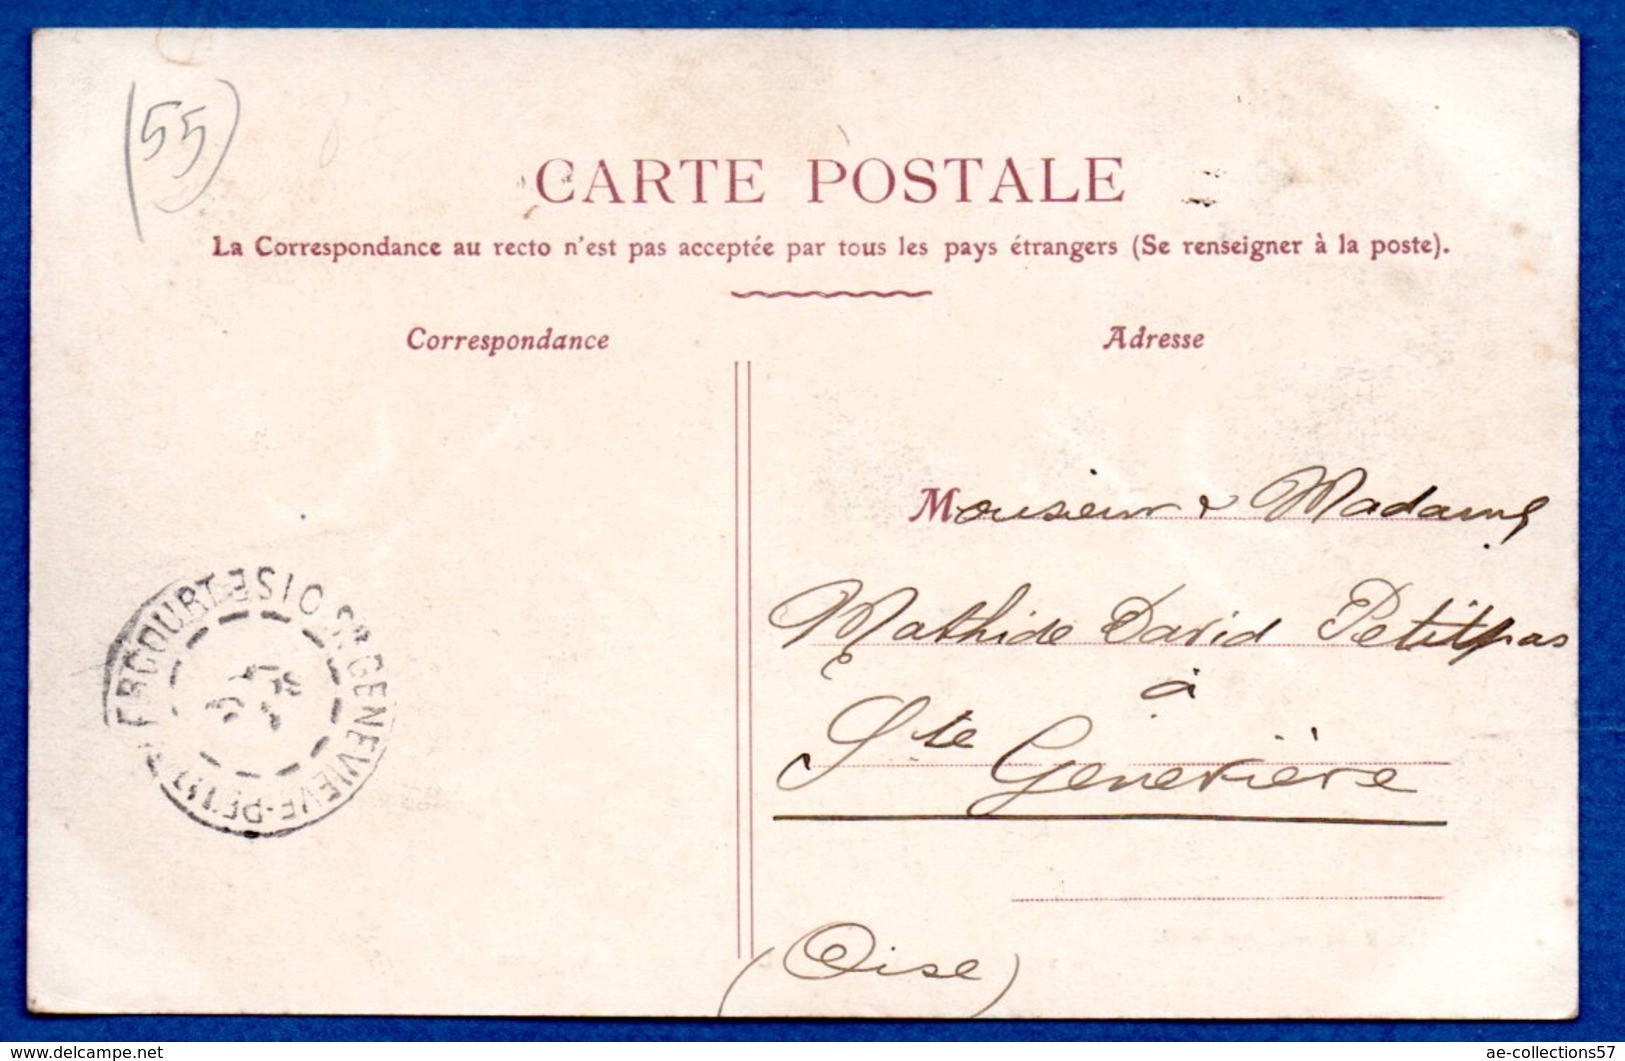 (55)
CARTE POSTALE
La Correspondance au recto n'est pas acceptée par tous les pays étrangers (Se renseigner à la poste).
Correspondance
Adresse
Monsieur & Madame
Mathide David Petitpas
à
Ste Geneviève
(Oise)
STE GENEVIEVE-PETIT FERCOURT OISE
ae-collections57